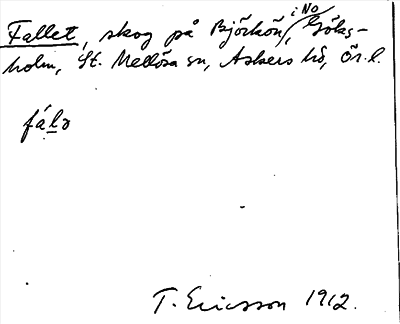 Fallet, skog på Björkön, i NO Göks-
holm, St. Mellösa sn, Askers hd, Ör. l.
fálə
T. Ericsson 1912.